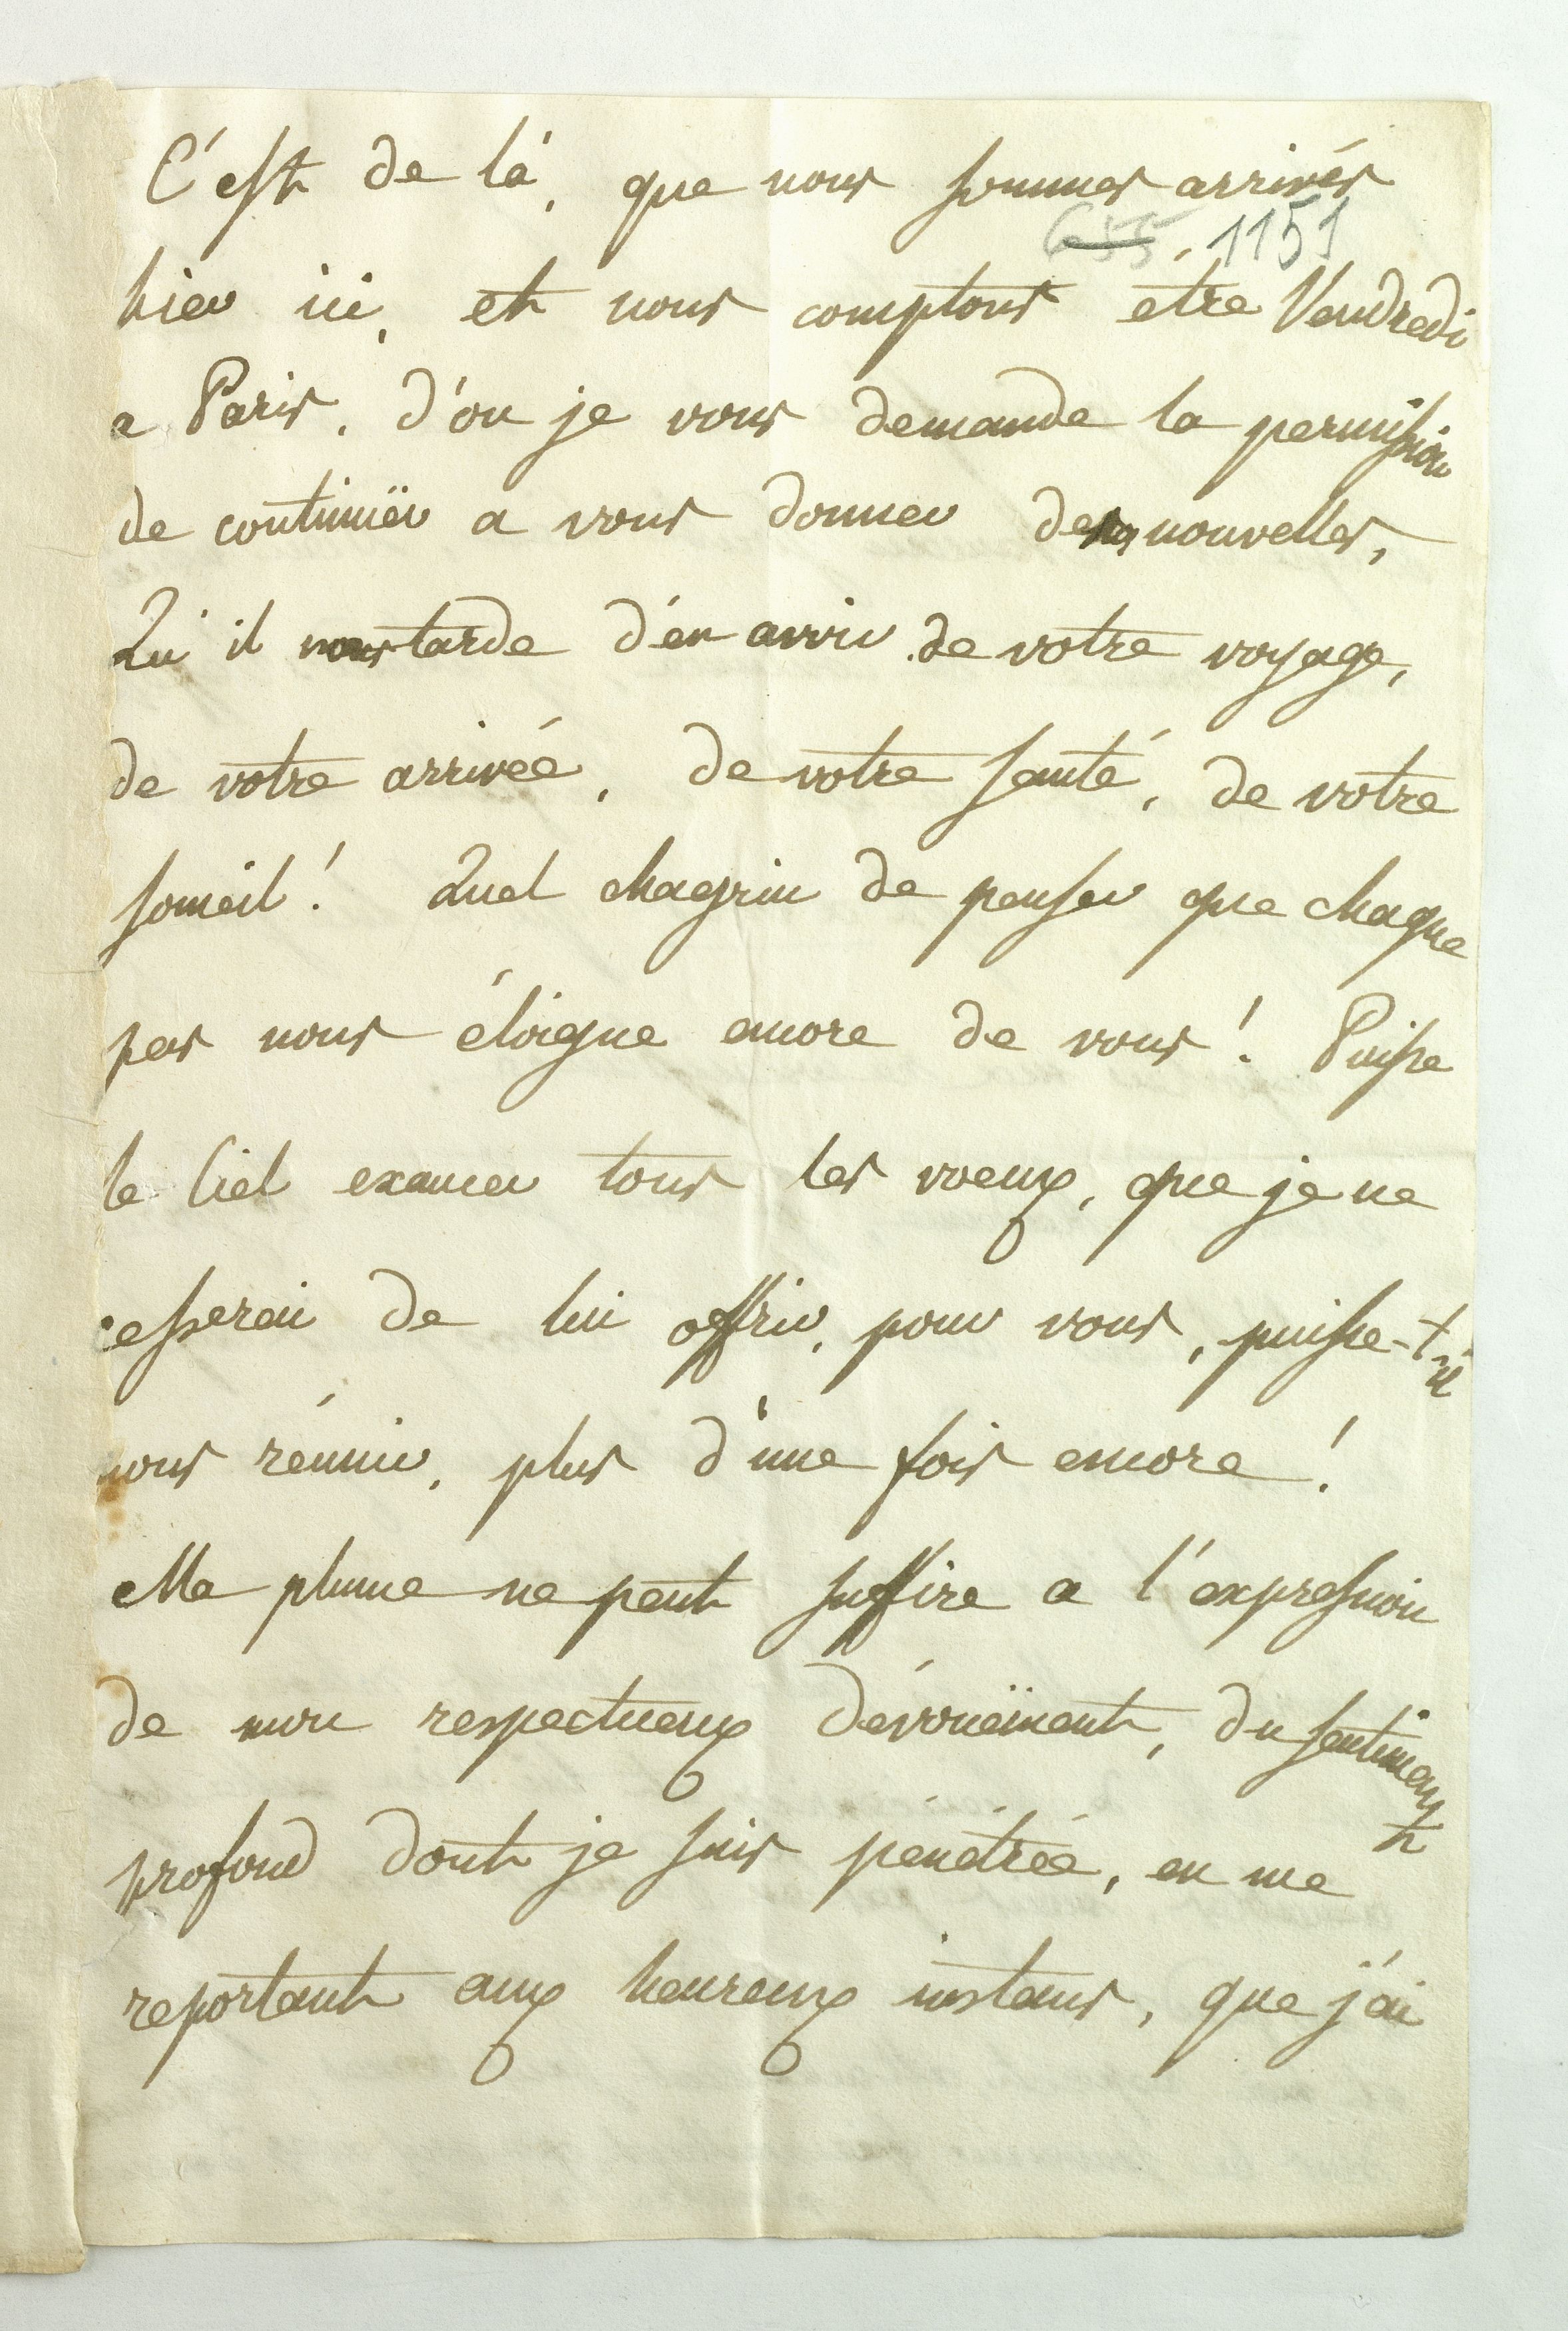 C'est de là, que nous sommes arrivés
655. 1151
hier ici, et nous comptons étre Vendredi
a Paris, d'ou je vous demande la permission
de continuër a vous donner de nos nouvelles,
Qu'il nous tarde d'en avoir de votre voyage,
de votre arrivée, de votre santé, de votre
someil! Quel chagrin de penser que chaque
pas nous éloigne encore de vous! Puisse
le Ciel exaucer tous les voeux, que je ne
cesserai de lui offrir, pour vous, puisse-t-il
nous réunir, plus d'une fois encore!
Ma plume ne peut suffire a l'expression
de mon respectueux dévouëment, du sentiment
profond dont je suis pénétrée, en me
reportant aux heureux instans, que j'ai